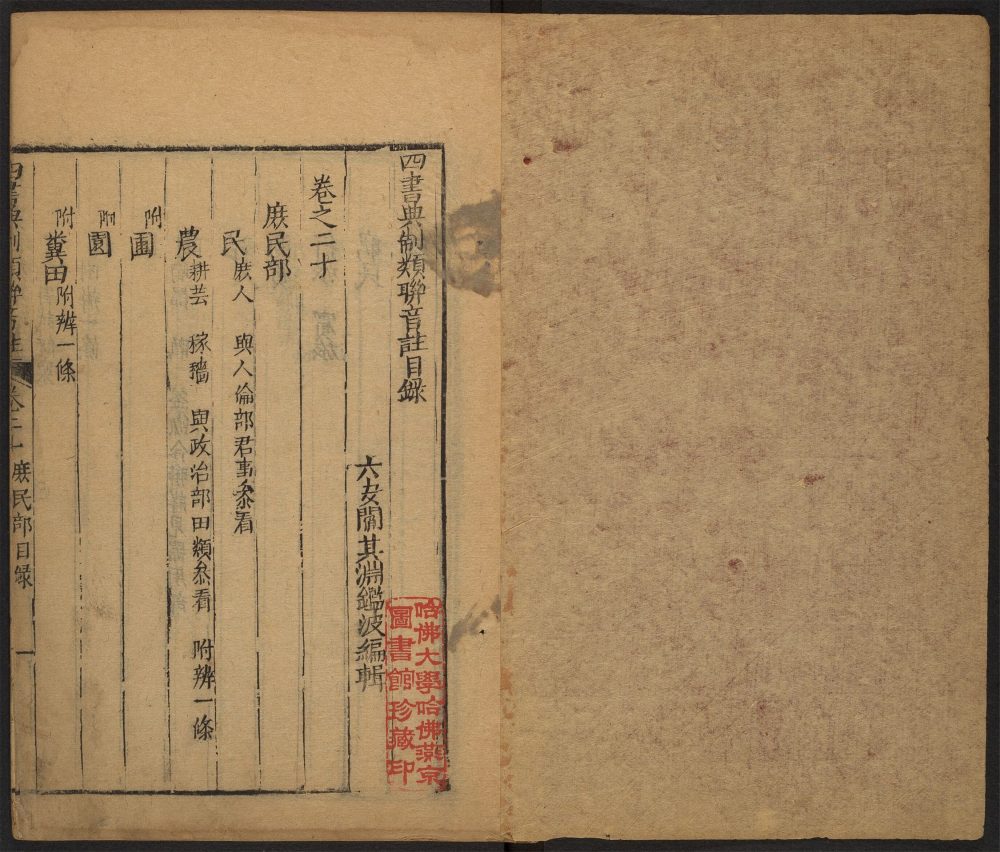 四書典制類聯音註目錄
六安閻其淵鑑波編輯
卷之二十
庶民部
民 庶人 與人倫部君事叅看
農 耕芸 稼穡 與政治部田類叅看 附辨一條
附圃
附園
附糞田 附辨一條
四書典制類聯音註 卷二十 庶民部目錄 一
哈佛大學哈佛燕京
圖書館珍藏印